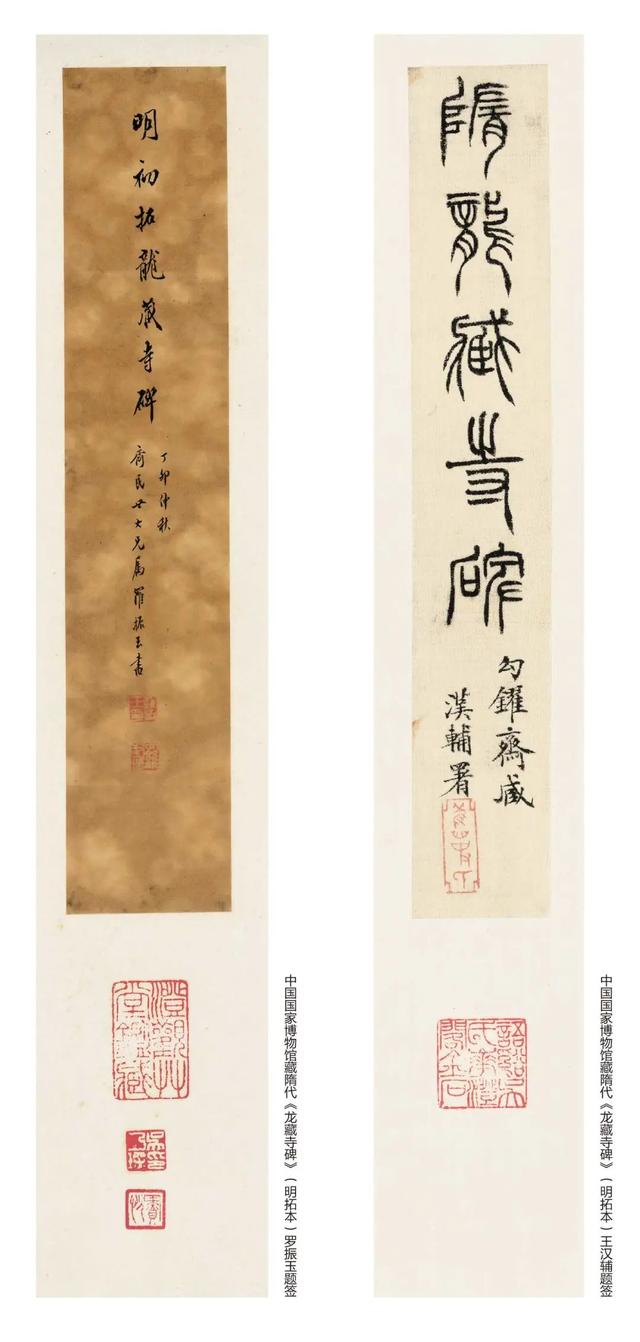 明初拓龍藏寺碑
丁卯仲秋
齊民世大兄屬羅振玉書
中国国家博物馆藏隋代《龙藏寺碑》（明拓本）罗振玉题签
隋龍藏寺碑
鑵齋臧
漢輔署
中国国家博物馆藏隋代《龙藏寺碑》（明拓本）王汉辅题签